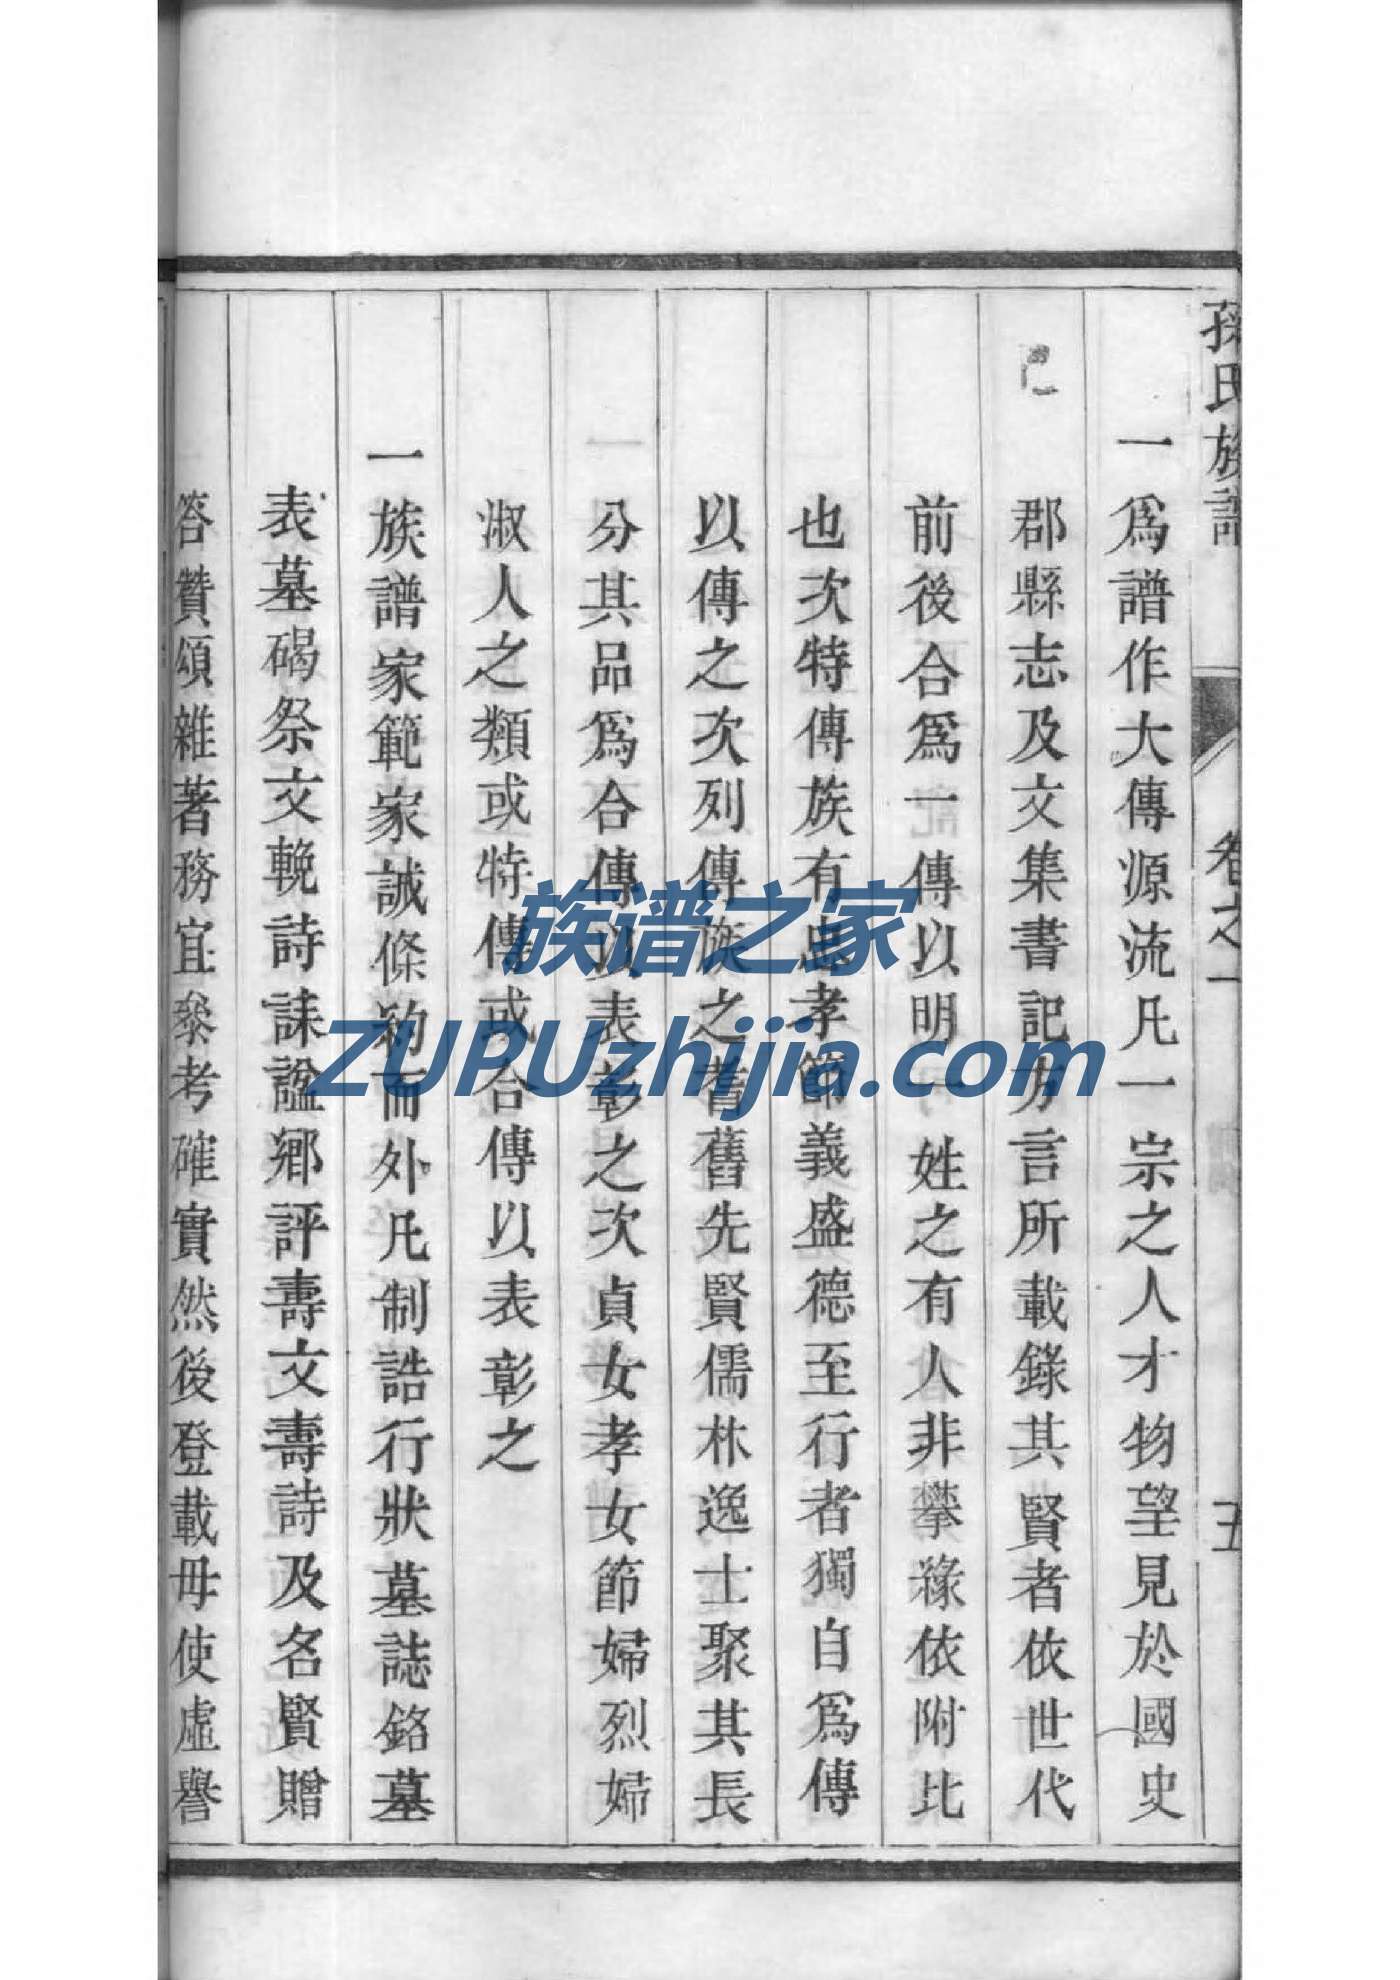 孫氏族譜 卷之一 五
一爲譜作大傳源流凡一宗之人才物望見於國史
郡縣志及文集書記方言所載錄其賢者依世代
前後合爲一傳以明一姓之有人非攀緣依附比
也次特傳族有忠孝節義盛德至行者獨自爲傳
以傳之次列傳族之耆舊先賢儒林逸士聚其長
分其品爲合傳以表彰之次貞女孝女節婦烈婦
淑人之類或特傳或合傳以表彰之
一族譜家範家誡條約而外凡制誥行狀墓誌銘墓
表墓碣祭文輓詩誄諡鄉評壽文壽詩及名賢贈
答贊頌雜著務宜參考確實然後登載毋使虛譽
族谱之家
ZUPUzhijia.com